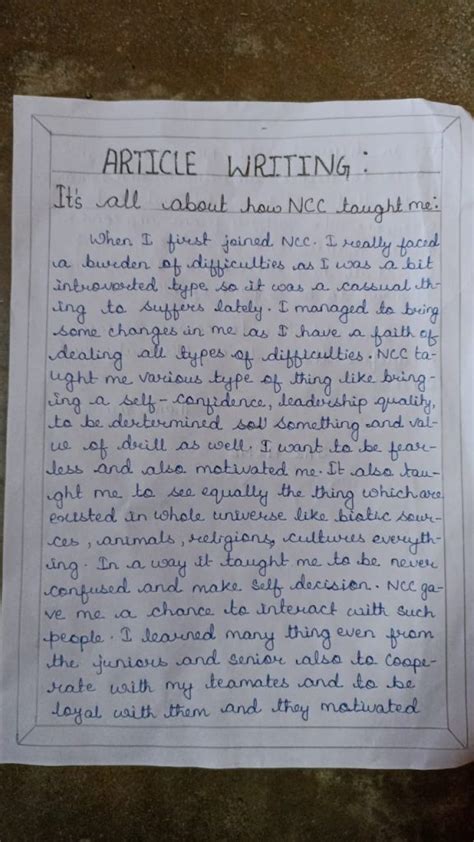 ARTICLE WRITING :
It's all about how NCC taught me:
When I first joined NCC. I really faced
a burden of difficulties as I was a bit
introvorted type so it was a cassual th-
ing to suffers lately. I managed to bring
some changes in me as I have a faith of
dealing all types of difficulties. NCC ta-
ught me various type of thing like bring-
ing a self-confidence, leadership quality,
to be dertermined something and val-
ue of drill as well. I want to be fear-
less and also motivated me. It also tau-
ght me to see equally the thing which are
existed in whole universe like biotic sour-
ces, animals, religions, cultures everyth-
ing. In a way it taught me to be never
confused and make self decision. NCC ga-
ve me a chance to interact with such
people. I learned many thing even from
the juniors and senior also to coope-
rate with my teamates and to be
loyal with them and they motivated